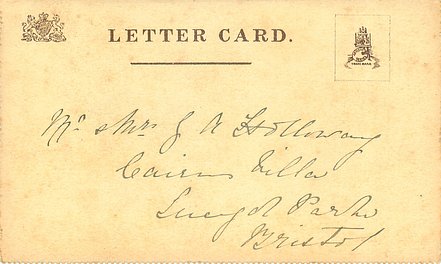 LETTER CARD.
TRADE MARK
Mr & Mrs J A Holloway
Cairns Villa
Park
Bristol